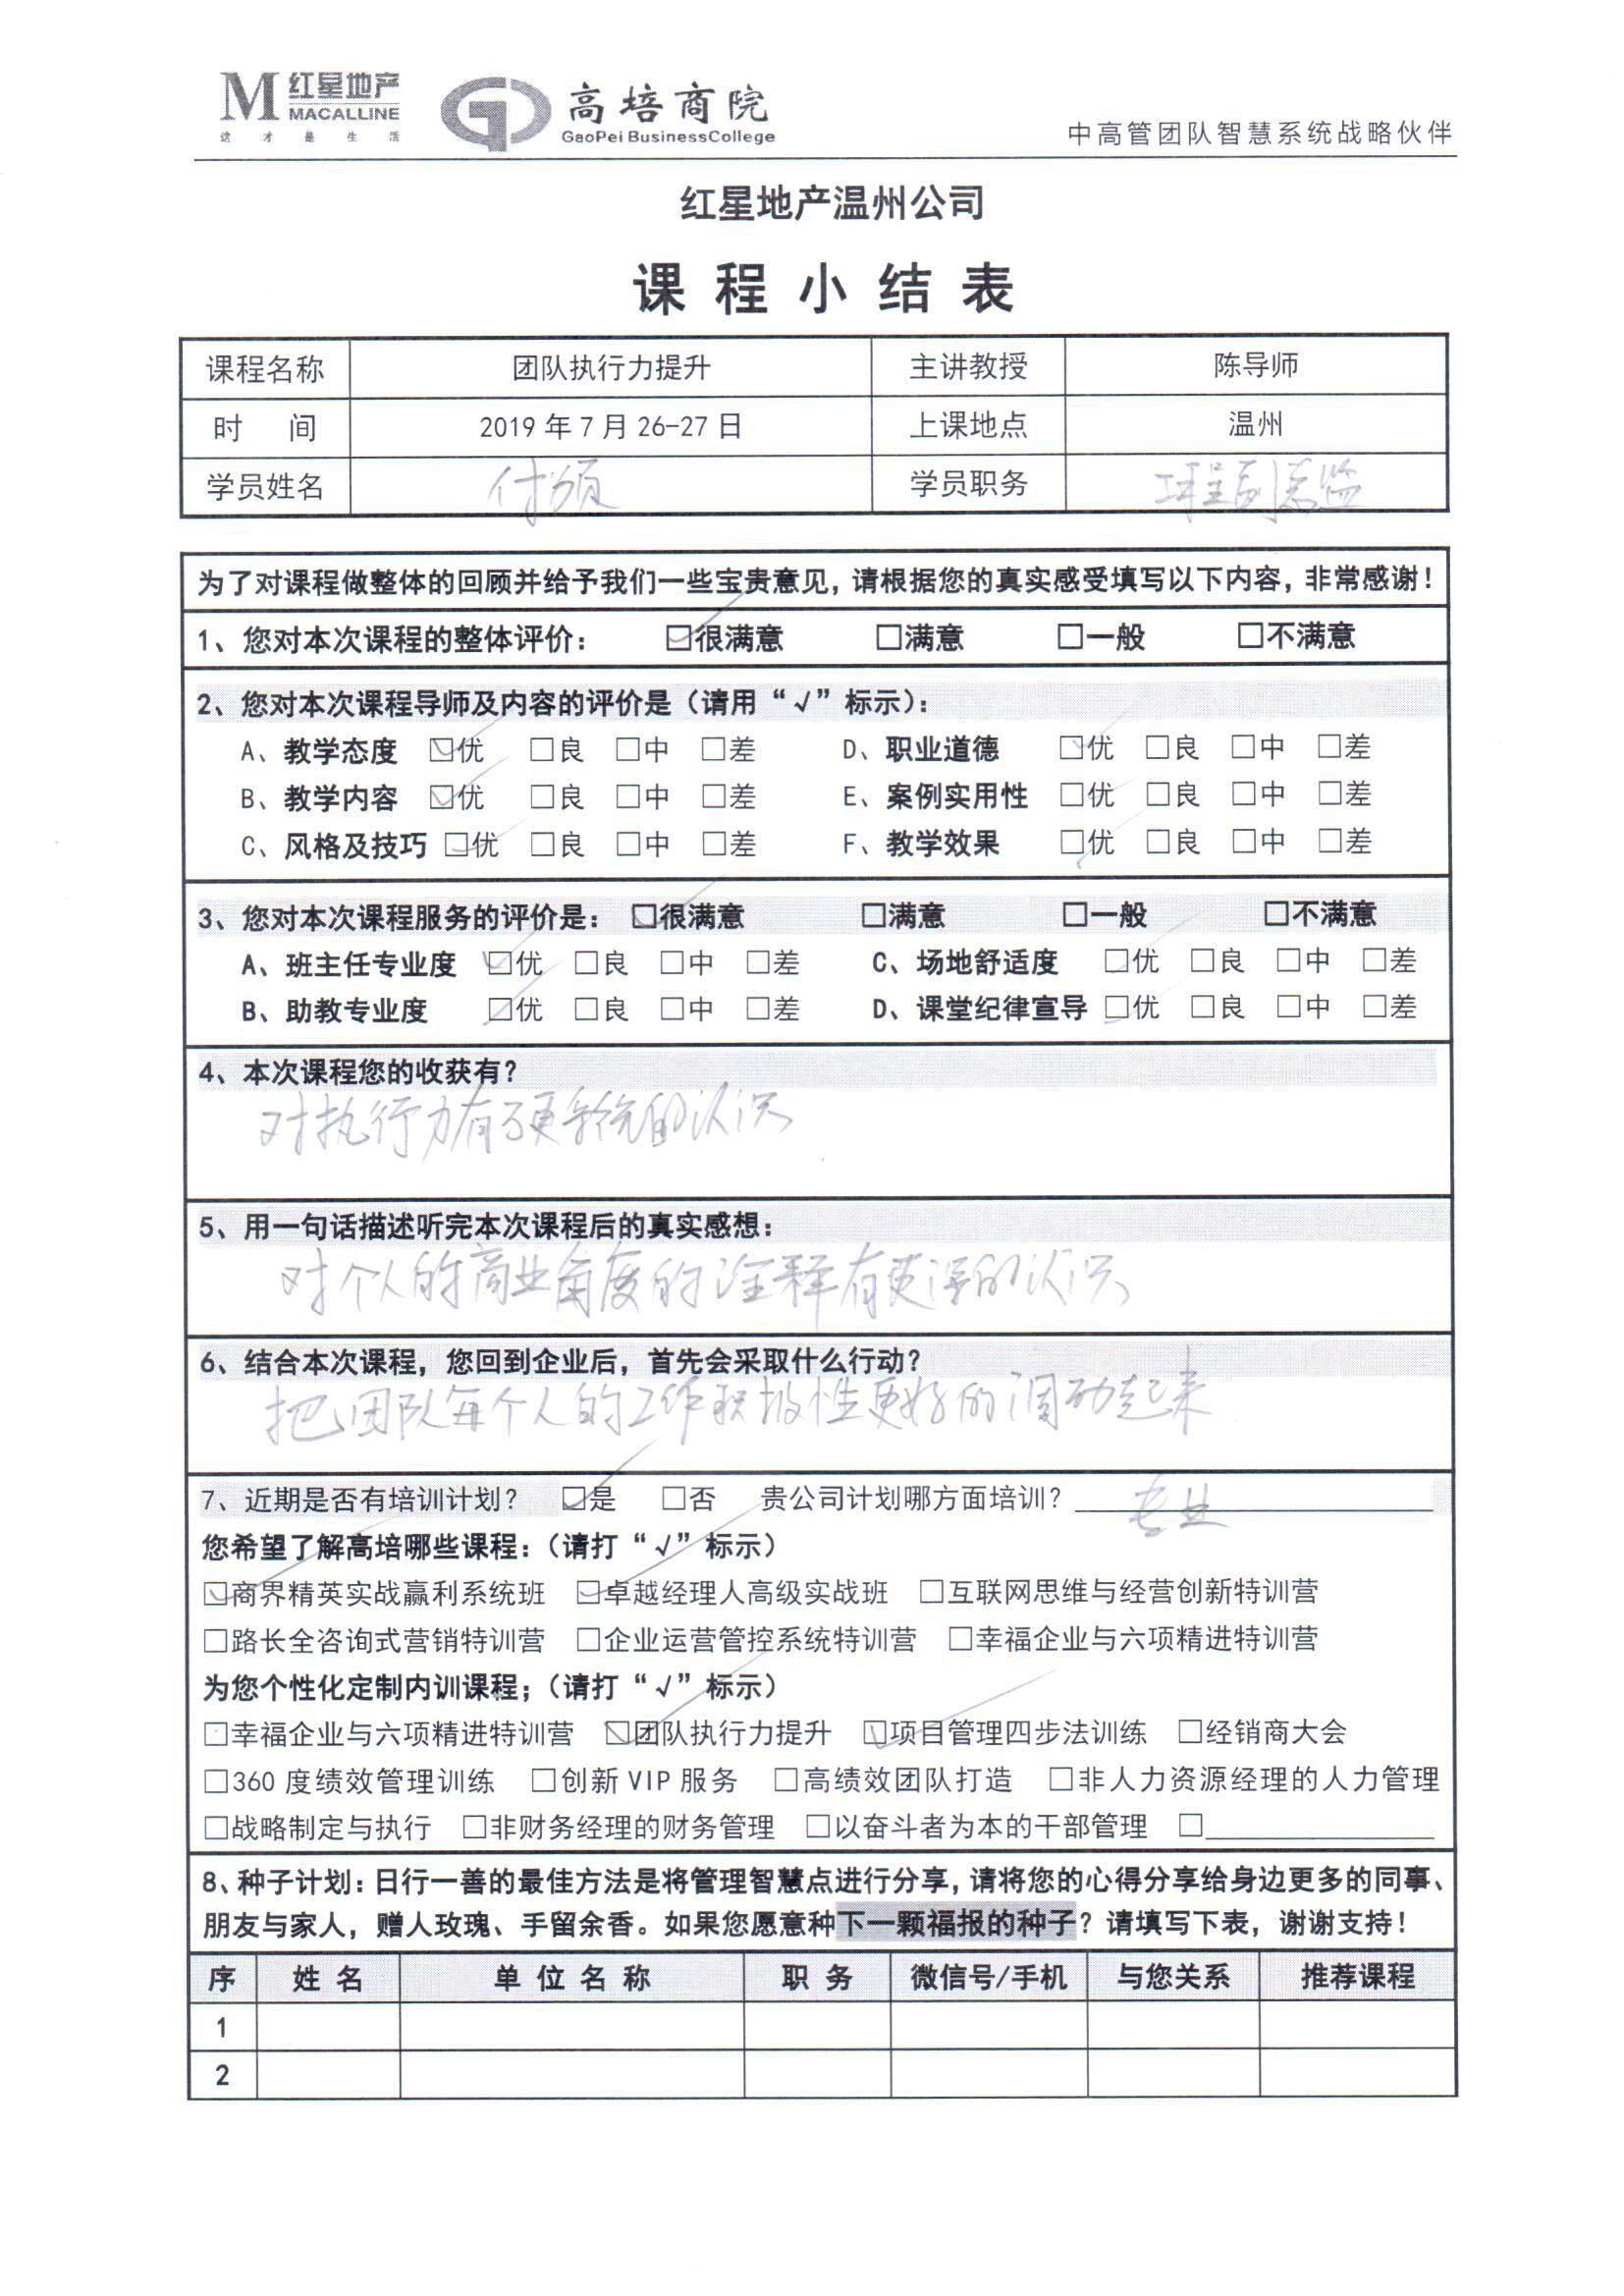 M 红星地产
MACALLINE
这才是生活
高培商院
GaoPei BusinessCollege
中高管团队智慧系统战略伙伴
红星地产温州公司
课程小结表
课程名称 团队执行力提升 主讲教授 陈导师
时 间 2019年7月26-27日 上课地点 温州
学员姓名 付 学员职务 工程副总监
为了对课程做整体的回顾并给予我们一些宝贵意见，请根据您的真实感受填写以下内容，非常感谢！
1、您对本次课程的整体评价： ☑很满意 □满意 □一般 □不满意
2、您对本次课程导师及内容的评价是（请用“√”标示）：
A、教学态度 ☑优 □良 □中 □差 D、职业道德 ☑优 □良 □中 □差
B、教学内容 ☑优 □良 □中 □差 E、案例实用性 ☑优 □良 □中 □差
C、风格及技巧 ☑优 □良 □中 □差 F、教学效果 ☑优 □良 □中 □差
3、您对本次课程服务的评价是： ☑很满意 □满意 □一般 □不满意
A、班主任专业度 ☑优 □良 □中 □差 C、场地舒适度 ☑优 □良 □中 □差
B、助教专业度 ☑优 □良 □中 □差 D、课堂纪律宣导 ☑优 □良 □中 □差
4、本次课程您的收获有？
对执行力有了更系统的认识
5、用一句话描述听完本次课程后的真实感想：
对个人的商业角度的诠释有更深的认识
6、结合本次课程，您回到企业后，首先会采取什么行动？
把团队每个人的工作积极性更好的调动起来
7、近期是否有培训计划？ ☑是 □否 贵公司计划哪方面培训？ 专业
您希望了解高培哪些课程：（请打“√”标示）
☑商界精英实战赢利系统班 ☑卓越经理人高级实战班 □互联网思维与经营创新特训营
□路长全咨询式营销特训营 □企业运营管控系统特训营 □幸福企业与六项精进特训营
为您个性化定制内训课程；（请打“√”标示）
□幸福企业与六项精进特训营 ☑团队执行力提升 ☑项目管理四步法训练 □经销商大会
□360度绩效管理训练 □创新VIP服务 □高绩效团队打造 □非人力资源经理的人力管理
□战略制定与执行 □非财务经理的财务管理 □以奋斗者为本的干部管理 □
8、种子计划：日行一善的最佳方法是将管理智慧点进行分享，请将您的心得分享给身边更多的同事、
朋友与家人，赠人玫瑰、手留余香。如果您愿意种下一颗福报的种子？请填写下表，谢谢支持！
序 姓名 单位名称 职务 微信号/手机 与您关系 推荐课程
1
2